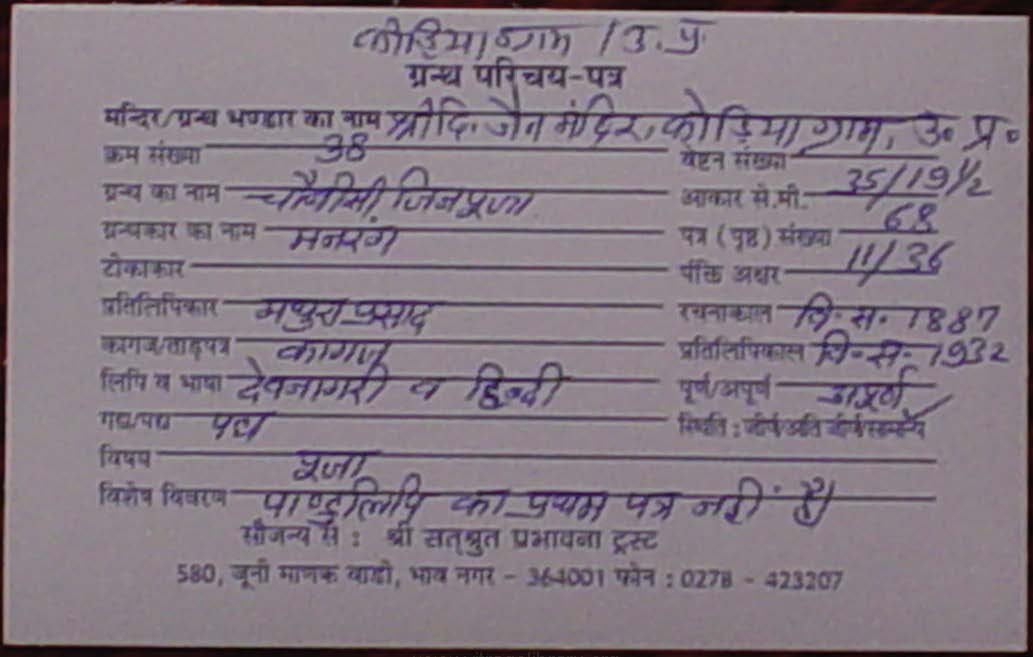 कोड़िया ग्राम / उ. प्र.
ग्रन्थ परिचय-पत्र
मन्दिर/ग्रन्थ भण्डार का नाम श्री दि. जैन मंदिर, कोड़िया ग्राम, उ० प्र०
क्रम संख्या 38 वेष्टन संख्या
ग्रन्थ का नाम चौवीसी जिनपूजा आकार से.मी. 35/19 1/2
ग्रन्थकार का नाम मनरंग पत्र (पृष्ठ) संख्या 68
टीकाकार पंक्ति अक्षर 11/36
प्रतिलिपिकार मथुरा प्रसाद रचनाकाल वि. स. 1887
कागज/ताड़पत्र कागज प्रतिलिपिकाल वि. स. 1932
लिपि व भाषा देवनागरी व हिन्दी पूर्ण/अपूर्ण अपूर्ण
गद्य/पद्य पद्य स्थिति : जीर्ण/अति जीर्ण/सामान्य
विषय पूजा
विशेष विवरण पाण्डुलिपि का प्रथम पत्र नहीं है।
सौजन्य से : श्री सत्श्रुत प्रभावना ट्रस्ट
580, जूनी माणक वाडी, भाव नगर - 364001 फोन : 0278 - 423207